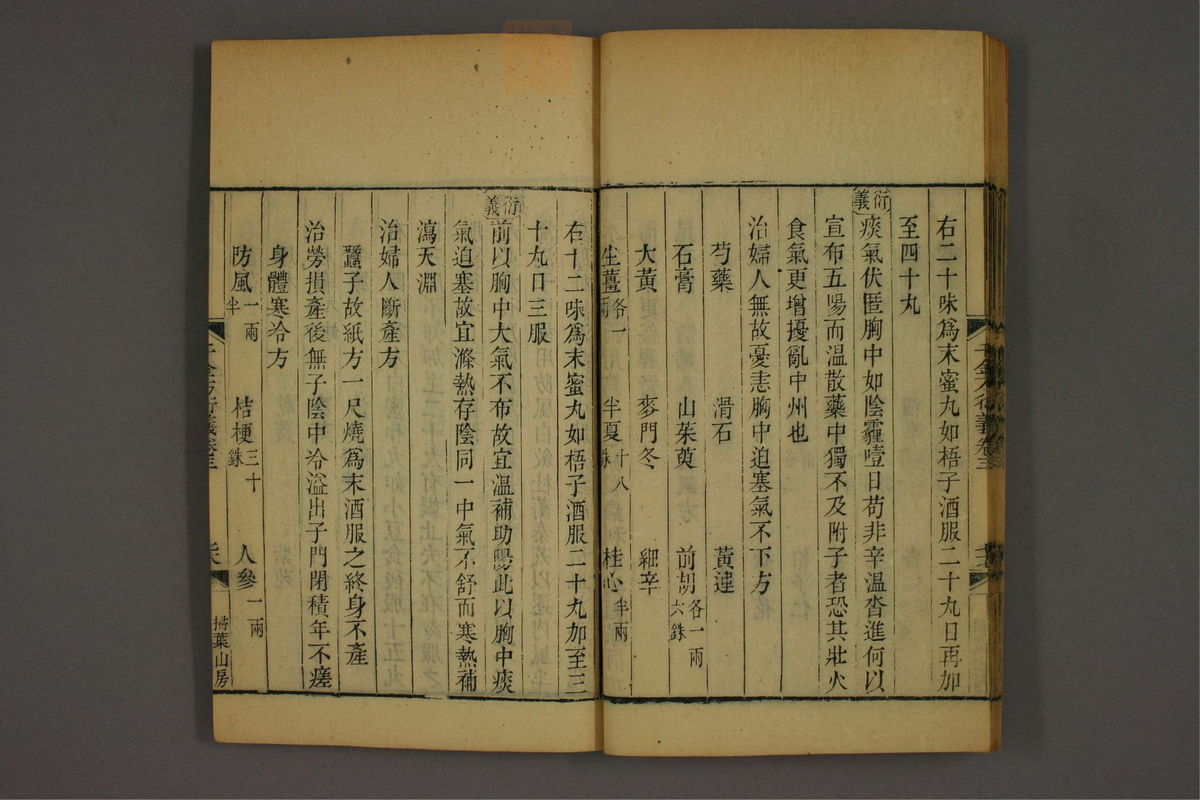 右二十味爲末蜜丸如梧子酒服二十丸日再加
至四十丸
衍義 痰氣伏匿胸中如陰霾曀日苟非辛温沓進何以
宣布五陽而温散藥中獨不及附子者恐其壯火
食氣更增擾亂中州也
治婦人無故憂恚胸中迫塞氣不下方
芍藥 滑石 黃連
石膏 山茱萸 前胡各一兩六銖
大黃 麥門冬 細辛
生薑各一兩 半夏十八銖 桂心半兩
右十二味爲末蜜丸如梧子酒服二十丸加至三
十丸日三服
衍義 前以胸中大氣不布故宜温補助陽此以胸中痰
氣迫塞故宜滌熱存陰同一中氣不舒而寒熱補
瀉天淵
治婦人斷產方
蠶子故紙方一尺燒爲末酒服之終身不產
治勞損產後無子陰中冷溢出子門閉積年不瘥
身體寒冷方
防風一兩半 桔梗三十銖 人參一兩
千金方衍義卷三
掃葉山房